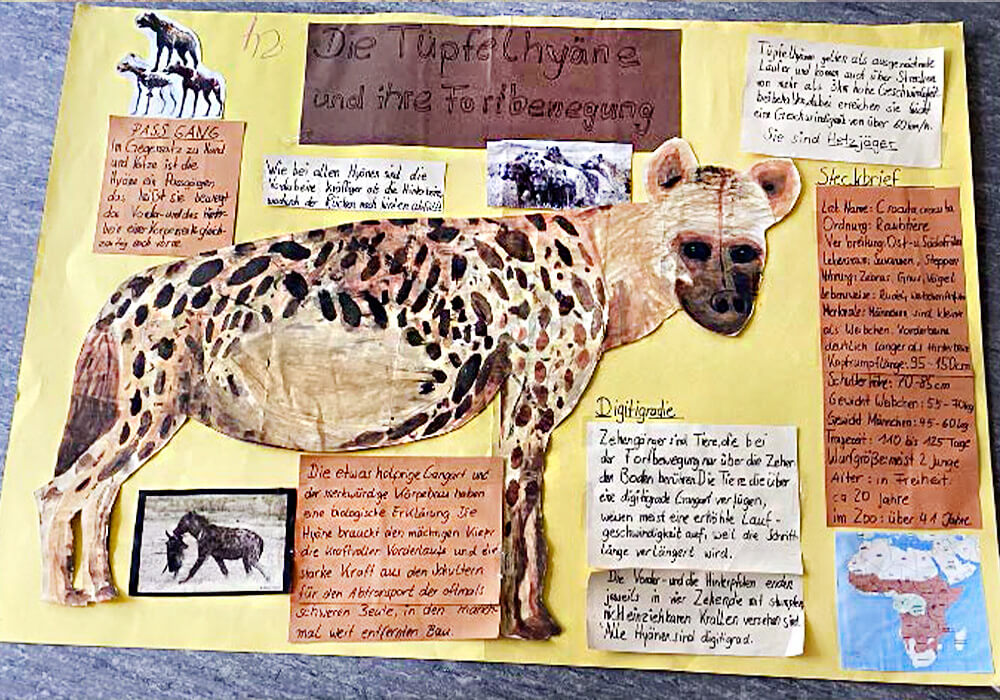 Die Tüpfelhyäne
und ihre Fortbewegung
PASS GANG
In Gegensatz zu Hund
und Katze ist die
Hyäne ein Passgänger,
das heißt sie bewegt
das Vorder- und das Hinter-
bein einer Körperseite gleich-
zeitig nach vorne.
Wie bei allen Hyänen sind die
Vorderbeine kräftiger als die Hinterbeine,
wodurch der Rücken nach hinten abfällt.
Tüpfelhyänen gelten als ausgezeichnete
Läufer und können auch über Strecken
von mehr als 3km hohe Geschwindigkeit
beibehalten, dabei erreichen sie leicht
eine Geschwindigkeit von über 60km/h.
Sie sind Hetzjäger
Steckbrief
Lat. Name: Crocuta crocuta
Ordnung: Raubtiere
Verbreitung: Ost- u. Südafrika
Lebensraum: Savannen, Steppen
Nahrung: Zebras, Gnus, Vögel
Lebensweise: Rudel,
Merkmale: Männchen sind kleiner
als Weibchen. Vorderbeine
deutlich länger als Hinterbeine
Kopfrumpflänge: 95-150cm
Schulterhöhe: 70-85cm
Gewicht Weibchen: 55-70kg
Gewicht Männchen: 45-60kg
Tragezeit: 110 bis 125 Tage
Wurfgröße meist 2 Junge
Alter: in Freiheit:
ca 20 Jahre
im Zoo: über 41 Jahre
Digitigradie
Zehengänger sind Tiere, die bei
der Fortbewegung nur über die Zehen
den Boden berühren. Die Tiere die über
eine digitigrade Gangart verfügen,
weisen meist eine erhöhte Lauf-
geschwindigkeit auf, weil die Schritt-
länge verlängert wird.
Die Vorder- und die Hinterpfoten enden
jeweils in vier Zehen die mit stumpfen,
nicht einziehbaren Krallen versehen sind.
Alle Hyänen sind digitigrad.
Die etwas holprige Gangart und
der merkwürdige Körperbau haben
eine biologische Erklärung. Die
Hyäne braucht den mächtigen Kiefer,
die kraftvollen Vorderläufe und die
starke Kraft aus den Schultern
für den Abtransport der oftmals
schweren Beute, in den manch-
mal weit entfernten Bau.